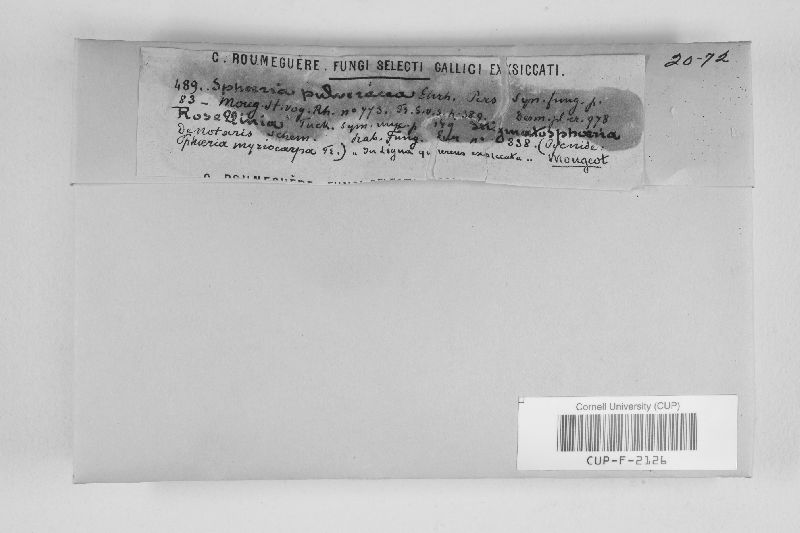 C. ROUMEGUÈRE. FUNGI SELECTI GALLICI EXSICCATI.
20-72
489. Sphæria pulveracea Ehrh. Pers Syn. fung. p.
83 - Moug. St. vog. Rh. nº 773. Fr. S.v.s. p. 389. Desm. pl. cr. 978
Rosellinia Fuck. Sym. myc. p. 149
de notaris Schem. Rab. Fung. Eur nº 338. (Pycnide.
Sphæria myriocarpa Fr.) "In ligna exsiccata".. Mougeot
C. ROUMEGUÈRE. FUNGI SELECTI
Cornell University (CUP)
CUP-F-2126